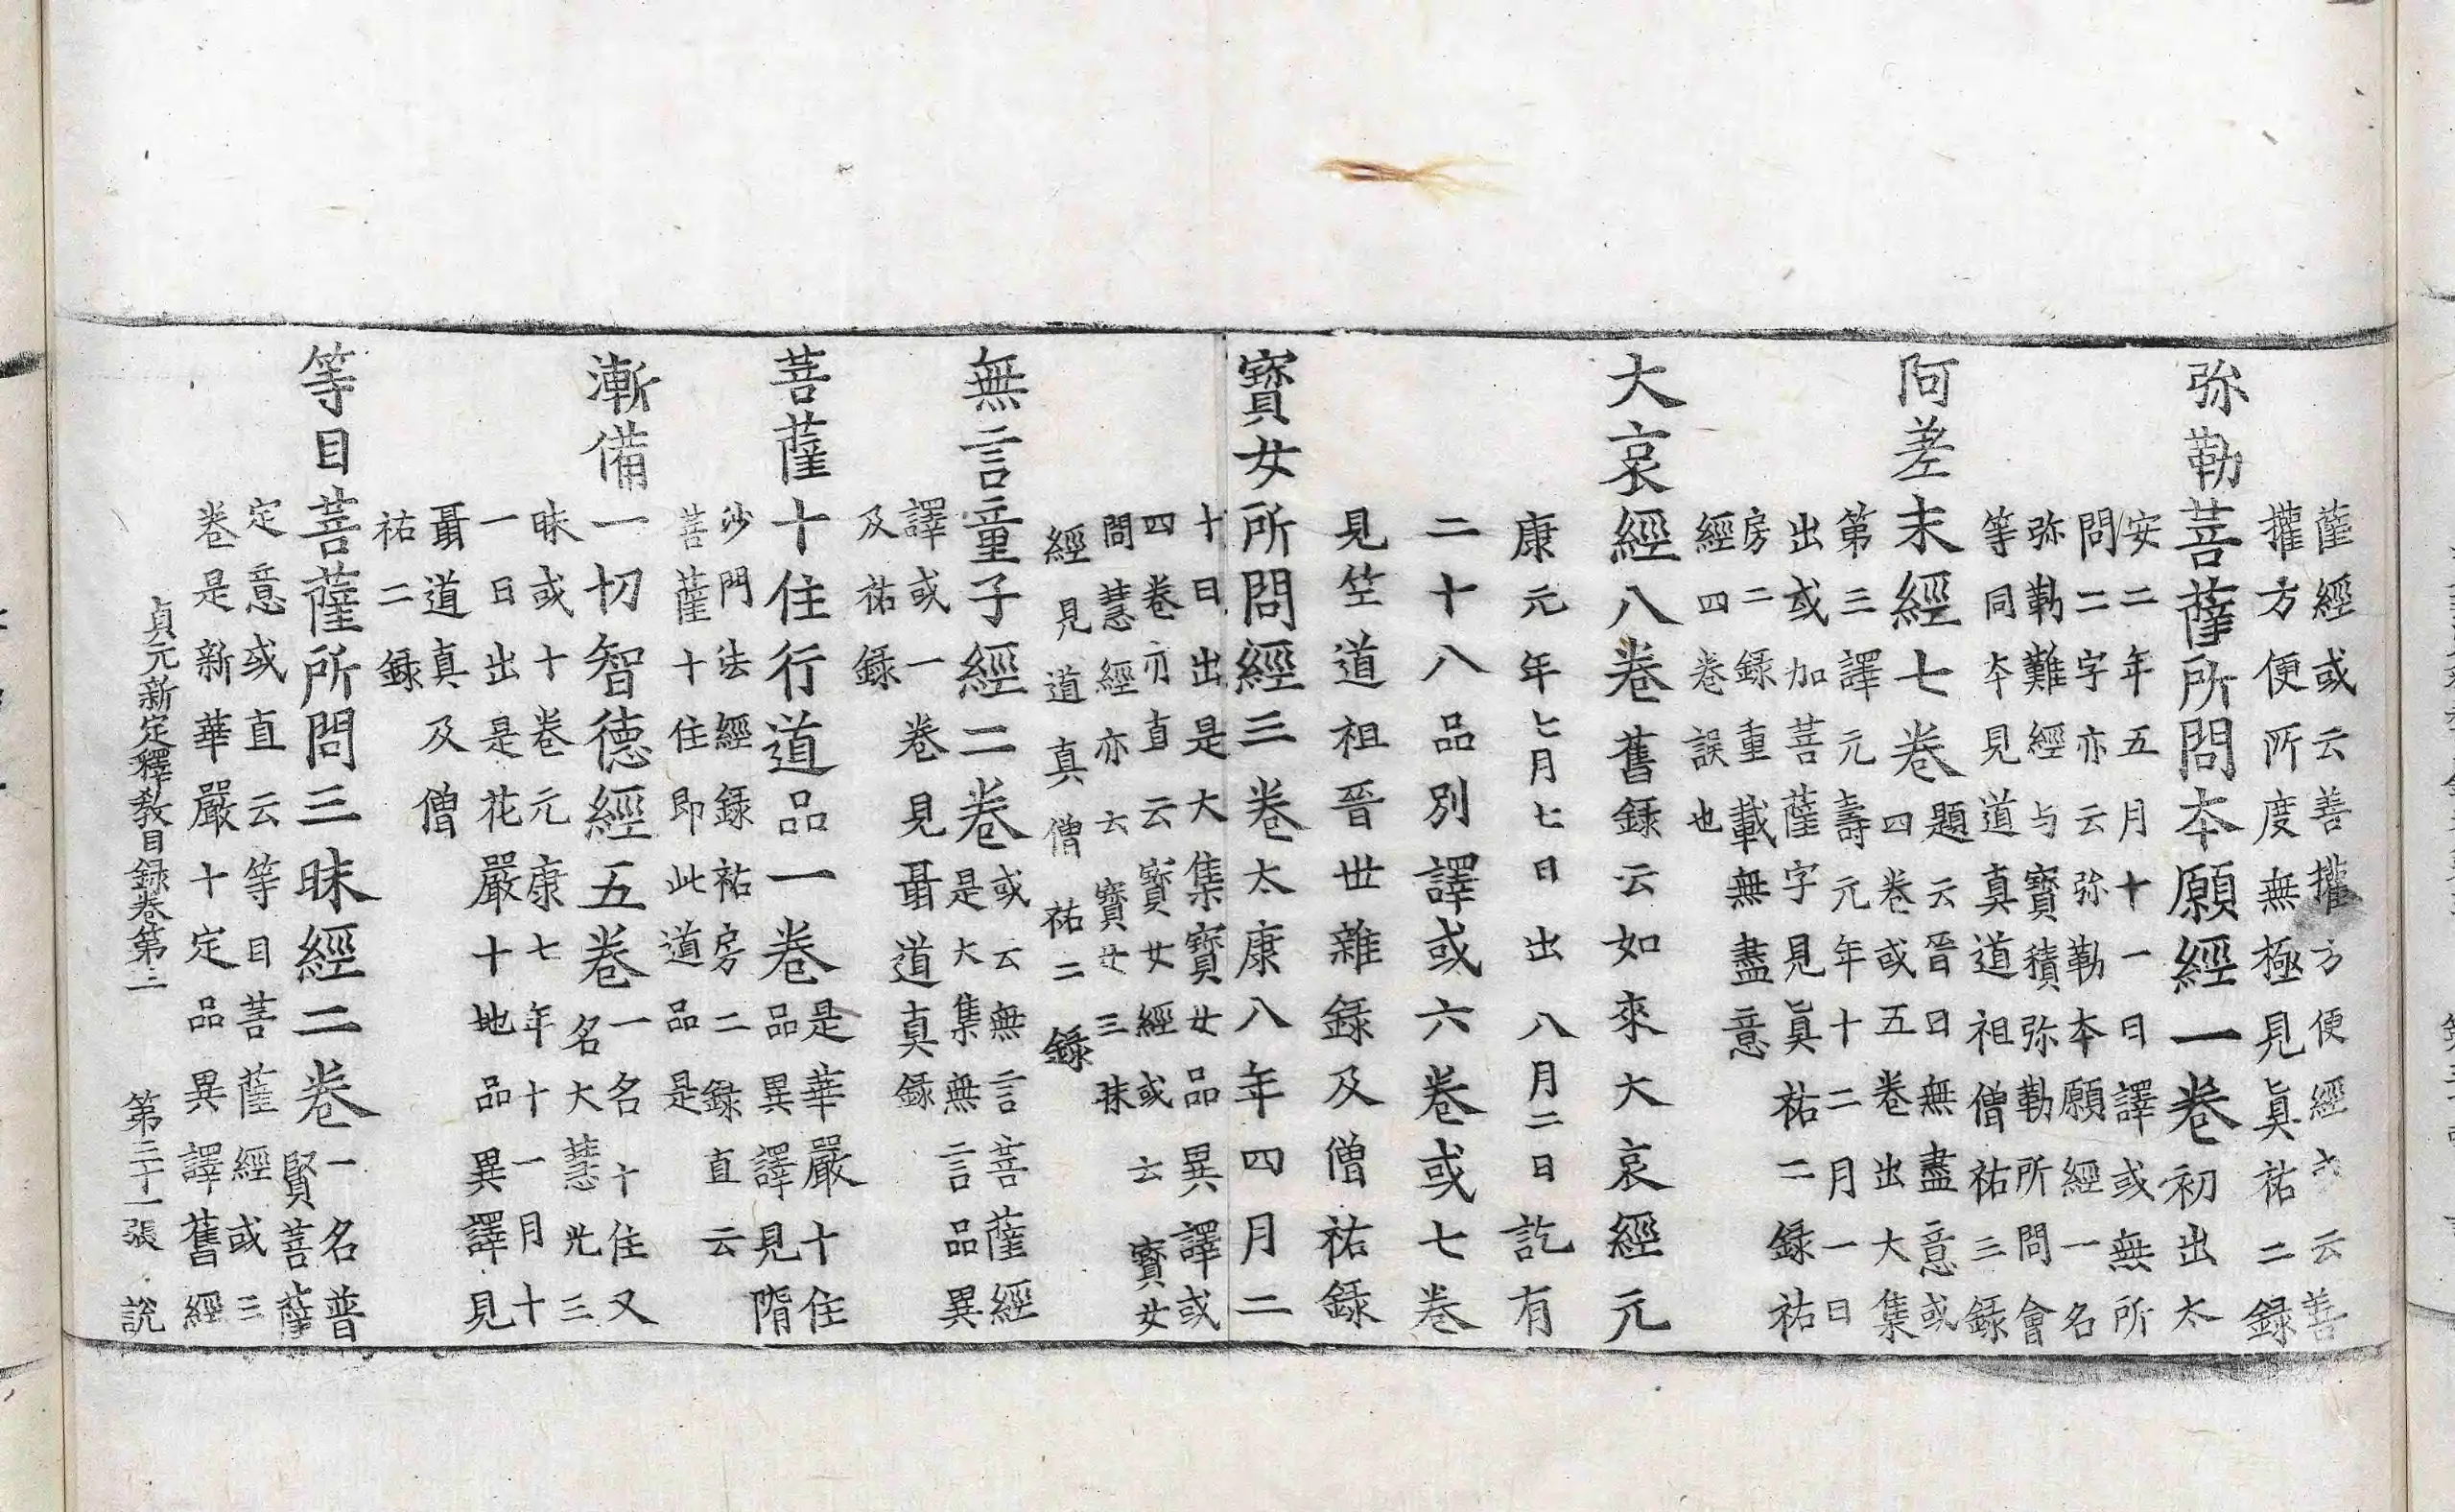 薩經或云善攉方便經亦云善
攉方便所度無極見眞祐二録
弥勒菩薩所問本願經一卷初出太
安二年五月十一日譯或無所
問二字亦云弥勒本願經一名
弥勒難經与寶積弥勒所問會
等同本見道真道祖僧祐三録
阿差末經七卷題云晉曰無盡意或
四卷或五卷出大集
第三譯元壽元年十二月一日
出或加菩薩字見眞祐二録祐
房二録重載無盡意
經四卷誤也
大哀經八卷舊録云如來大哀經元
康元年七月七日出八月二日訖有
二十八品別譯或六卷或七卷
見笠道祖晉世雜録及僧祐録
寶女所問經三卷太康八年四月二
十日出是大集寶女品異譯或
四卷亦直云寶女經或云寶女
問慧經亦云寶女三昧
經見道真僧祐二録
無言童子經二卷或云無言菩薩經
是大集無言品異
譯或一卷見聶道真録
及祐録
菩薩十住行道品一卷是華嚴十住
品異譯見隋
沙門法經録祐房二録直云
菩薩十住即此道品是
漸備一切智德經五卷一名十住又
名大慧光三
昧或十卷元康七年十一月十
一日出是花嚴十地品異譯見
聶道真及僧
祐二録
等目菩薩所問三昧經二卷一名普
賢菩薩
定意或直云等目菩薩經或三
卷是新華嚴十定品異譯舊經
貞元新定釋教目録卷第三 第三十一張 説